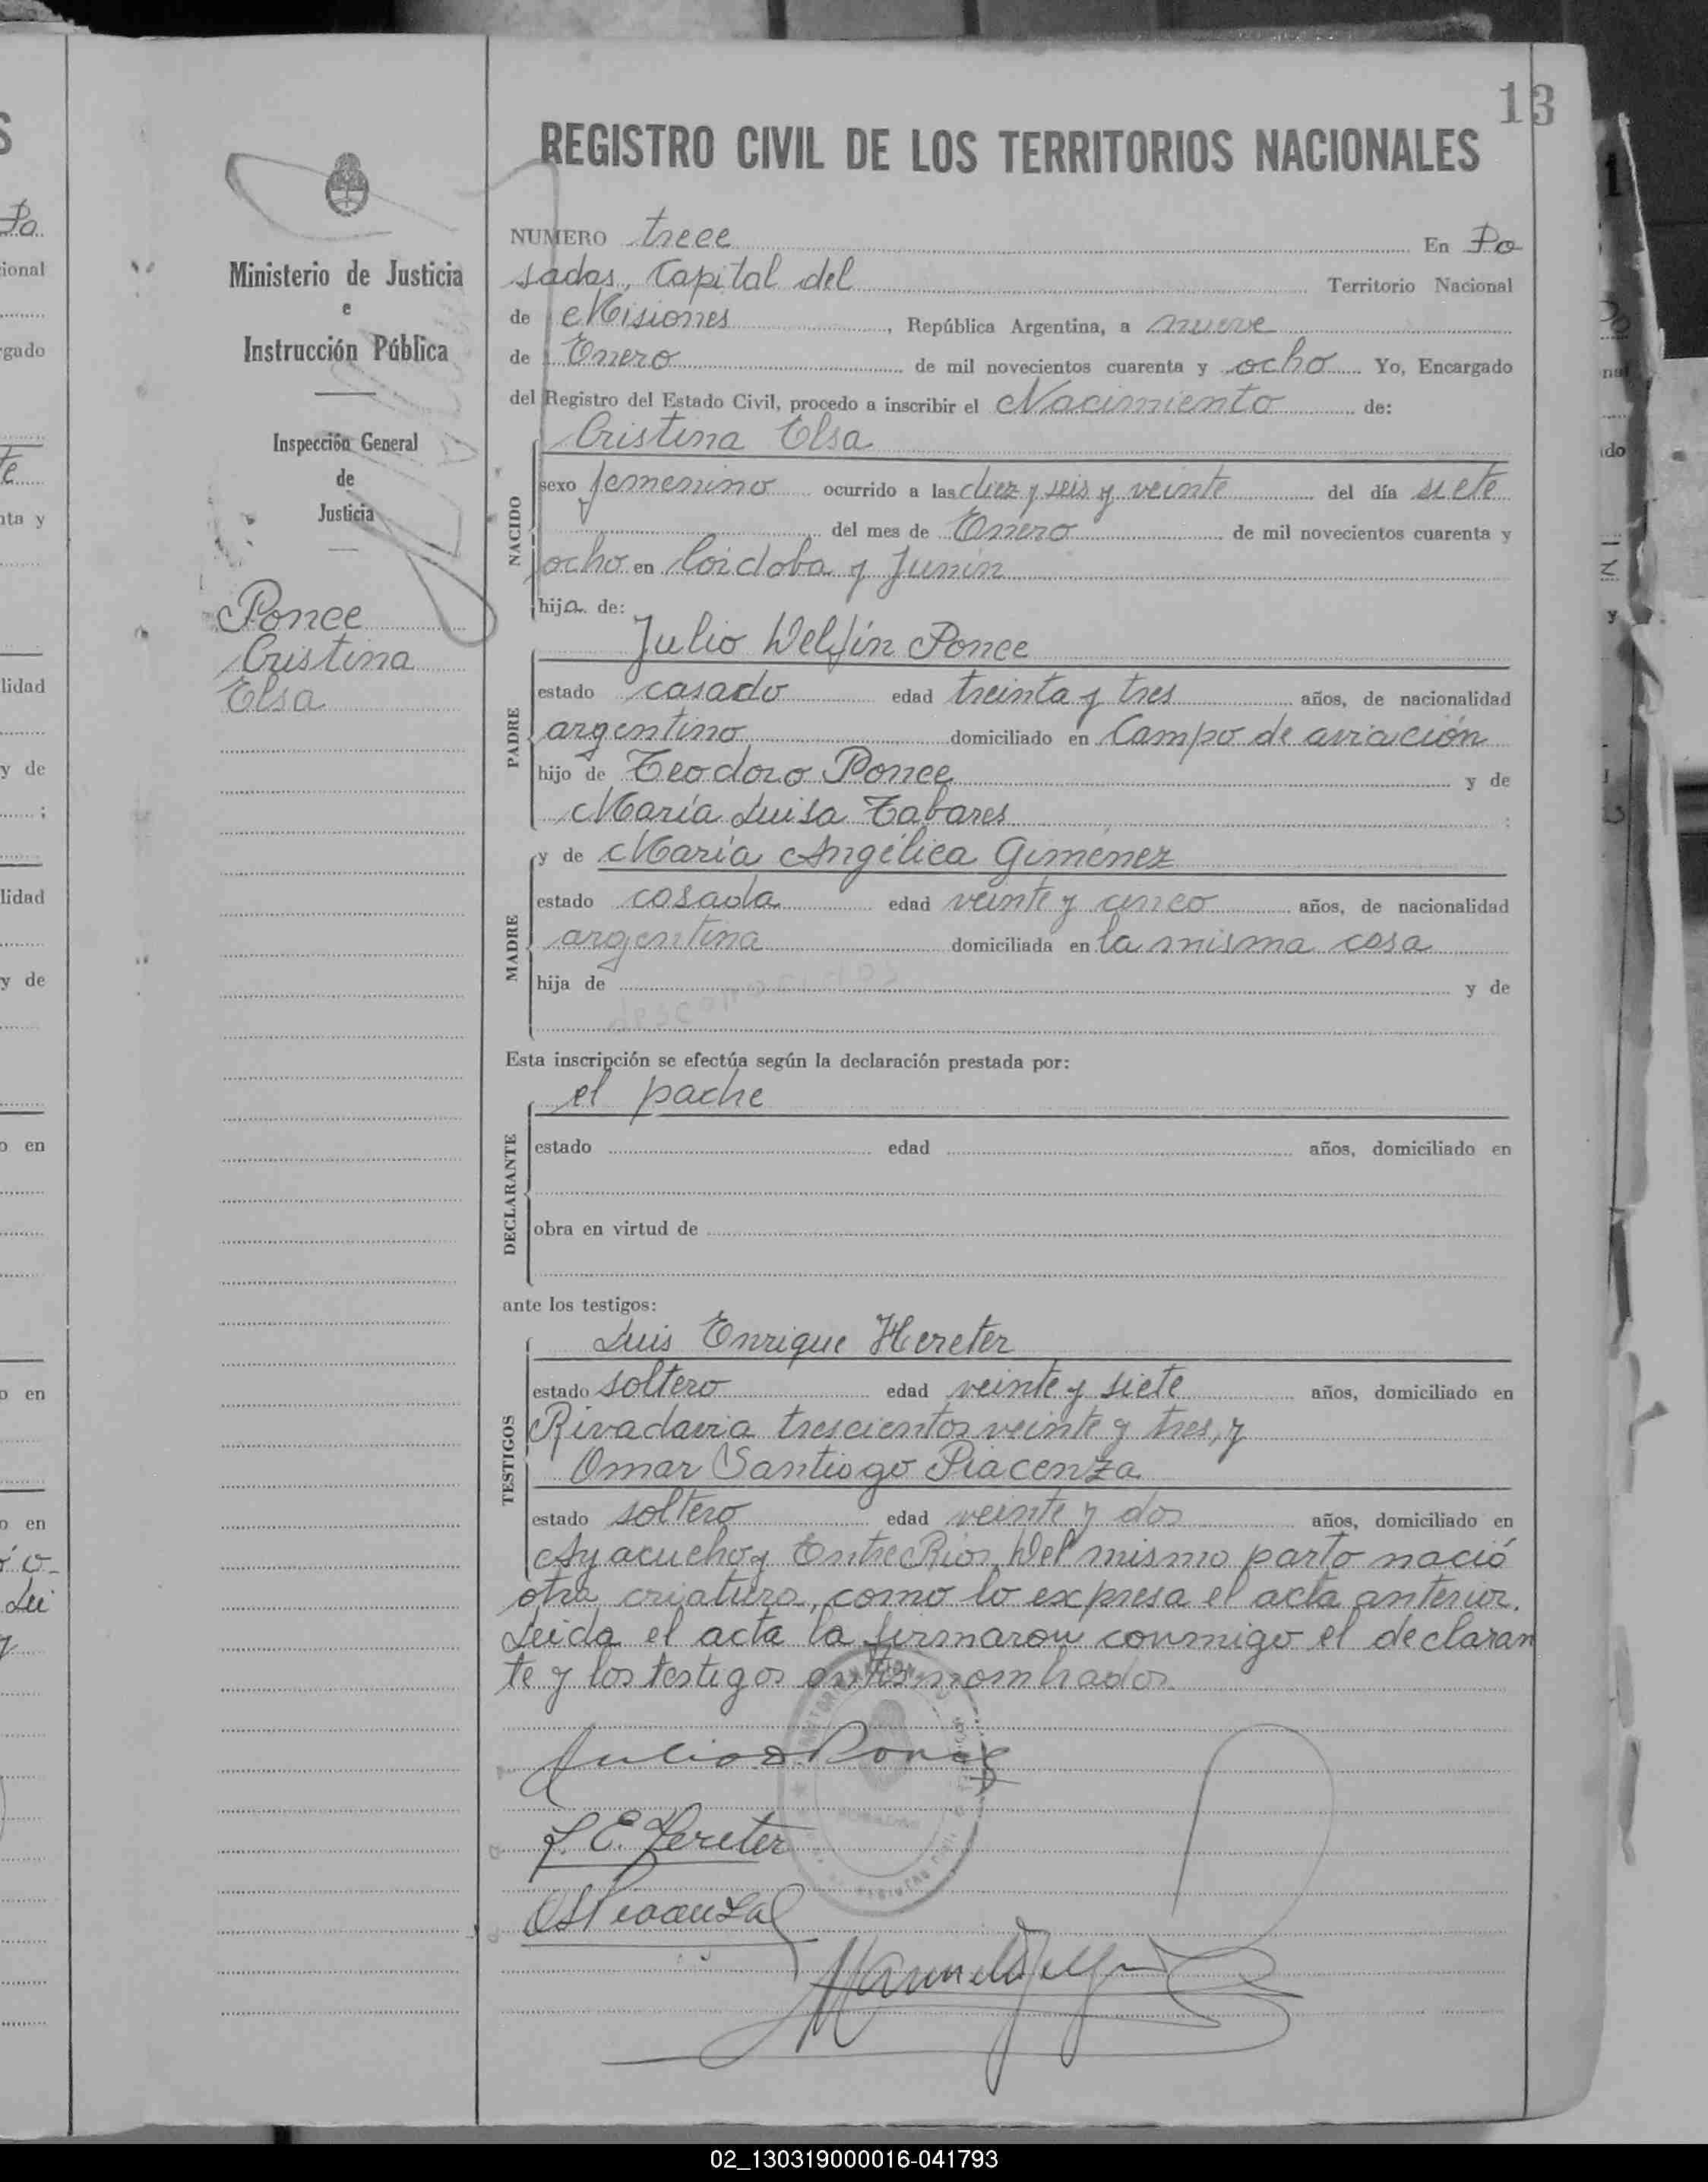 13
REGISTRO CIVIL DE LOS TERRITORIOS NACIONALES
Ministerio de Justicia
e
Instrucción Pública
Inspección General
de
Justicia
Ponce
Cristina
Elsa
NUMERO trece En Po
sadas, Capital del Territorio Nacional
de Misiones, República Argentina, a nueve
de Enero de mil novecientos cuarenta y ocho Yo, Encargado
del Registro del Estado Civil, procedo a inscribir el Nacimiento de:
Cristina Elsa
NACIDO
sexo femenino ocurrido a las diez y seis y veinte del día siete
del mes de Enero de mil novecientos cuarenta y
ocho en Córdoba y Junín
hija de:
Julio Delfín Ponce
PADRE
estado casado edad treinta y tres años, de nacionalidad
argentino domiciliado en Campo de aviación
hijo de Teodoro Ponce y de
María Luisa Tabares ;
y de María Angélica Gimenez
MADRE
estado casada edad veinte y cinco años, de nacionalidad
argentina domiciliada en la misma casa
hija de y de
desconocidos
Esta inscripción se efectúa según la declaración prestada por:
el padre
DECLARANTE
estado edad años, domiciliado en
obra en virtud de
ante los testigos:
Luis Enrique Hereter
TESTIGOS
estado soltero edad veinte y siete años, domiciliado en
Rivadavia trescientos veinte y tres, y
Omar Santiago Piacenza
estado soltero edad veinte y dos años, domiciliado en
Ayacucho y Entre Rios, Del mismo parto nació
otra criatura, como lo expresa el acta anterior.
Leida el acta la firmaron conmigo el declaran
te y los testigos antes nombrados
Julio D Ponce
L. E. Hereter
OSPiacenza
02_130319000016-041793